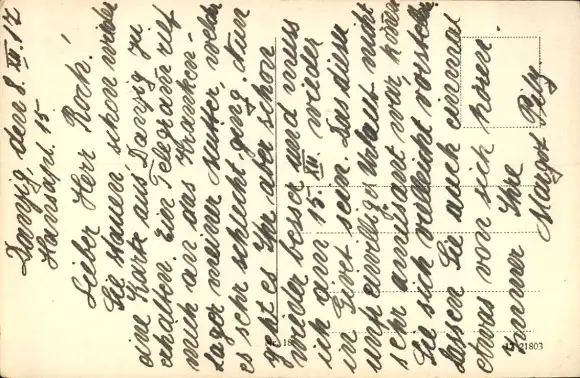 Danzig, den 8. XII. 17
Hansapl. 15
Lieber Herr Roch!
Sie staunen schon wieder
eine Karte aus Danzig zu
erhalten. Ein Telegramm rief
mich an das Kranken-
lager meiner Mutter, welcher
es sehr schlecht ging. Nun
geht es Ihr aber schon
wieder besser und muss
ich am 15. XII. wieder
in Givet sein. Das dieser
unfreiwillige Urlaub nicht
sehr amüsant war, können
Sie sich vielleicht vorstellen.
Lassen Sie auch einmal
etwas von sich hören.
Immer Ihre
Margot Pily.
Nr. 18
21803